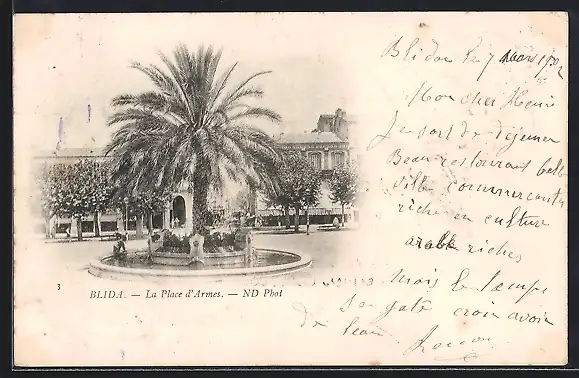 3
BLIDA. — La Place d'Armes. — ND Phot
Blida le 7 mars 1902
Mon cher Henri
Je sort de déjeuner
Beau restaurant belle
ville commercante
riche en culture
arabe riches
mais le tempe
se gate crois avoir
de l'eau